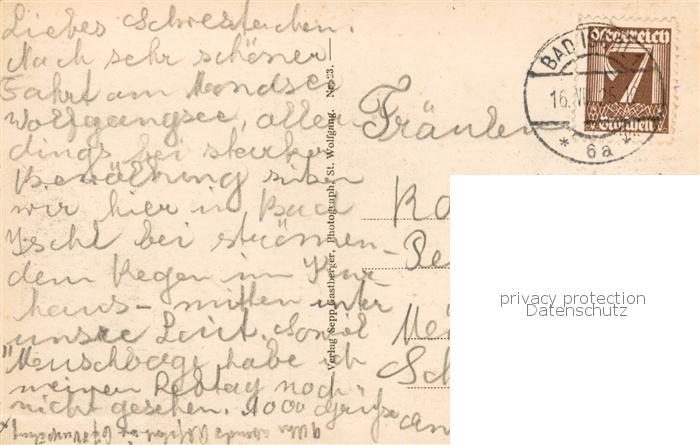 Liebes Schwesterchen.
Nach sehr schöner
Fahrt am Mondsee
Wolfgangsee, aller-
dings bei starker
Bewölkung sitzen
wir hier in Bad
Ischl bei strömen-
dem Regen im Kur-
haus - mitten unter
unsre Leut. Soviel
"Menschbagi habe ich
meinen Lebtag noch
nicht gesehen. 1000 Grüße
Verlag Sepp Gastberger, Photograph, St. Wolfgang. Nr. 23.
Fräulein
BAD ISCHL
16. VII. 25
* 6a *
Österreich
7
Groschen
privacy protection
Datenschutz